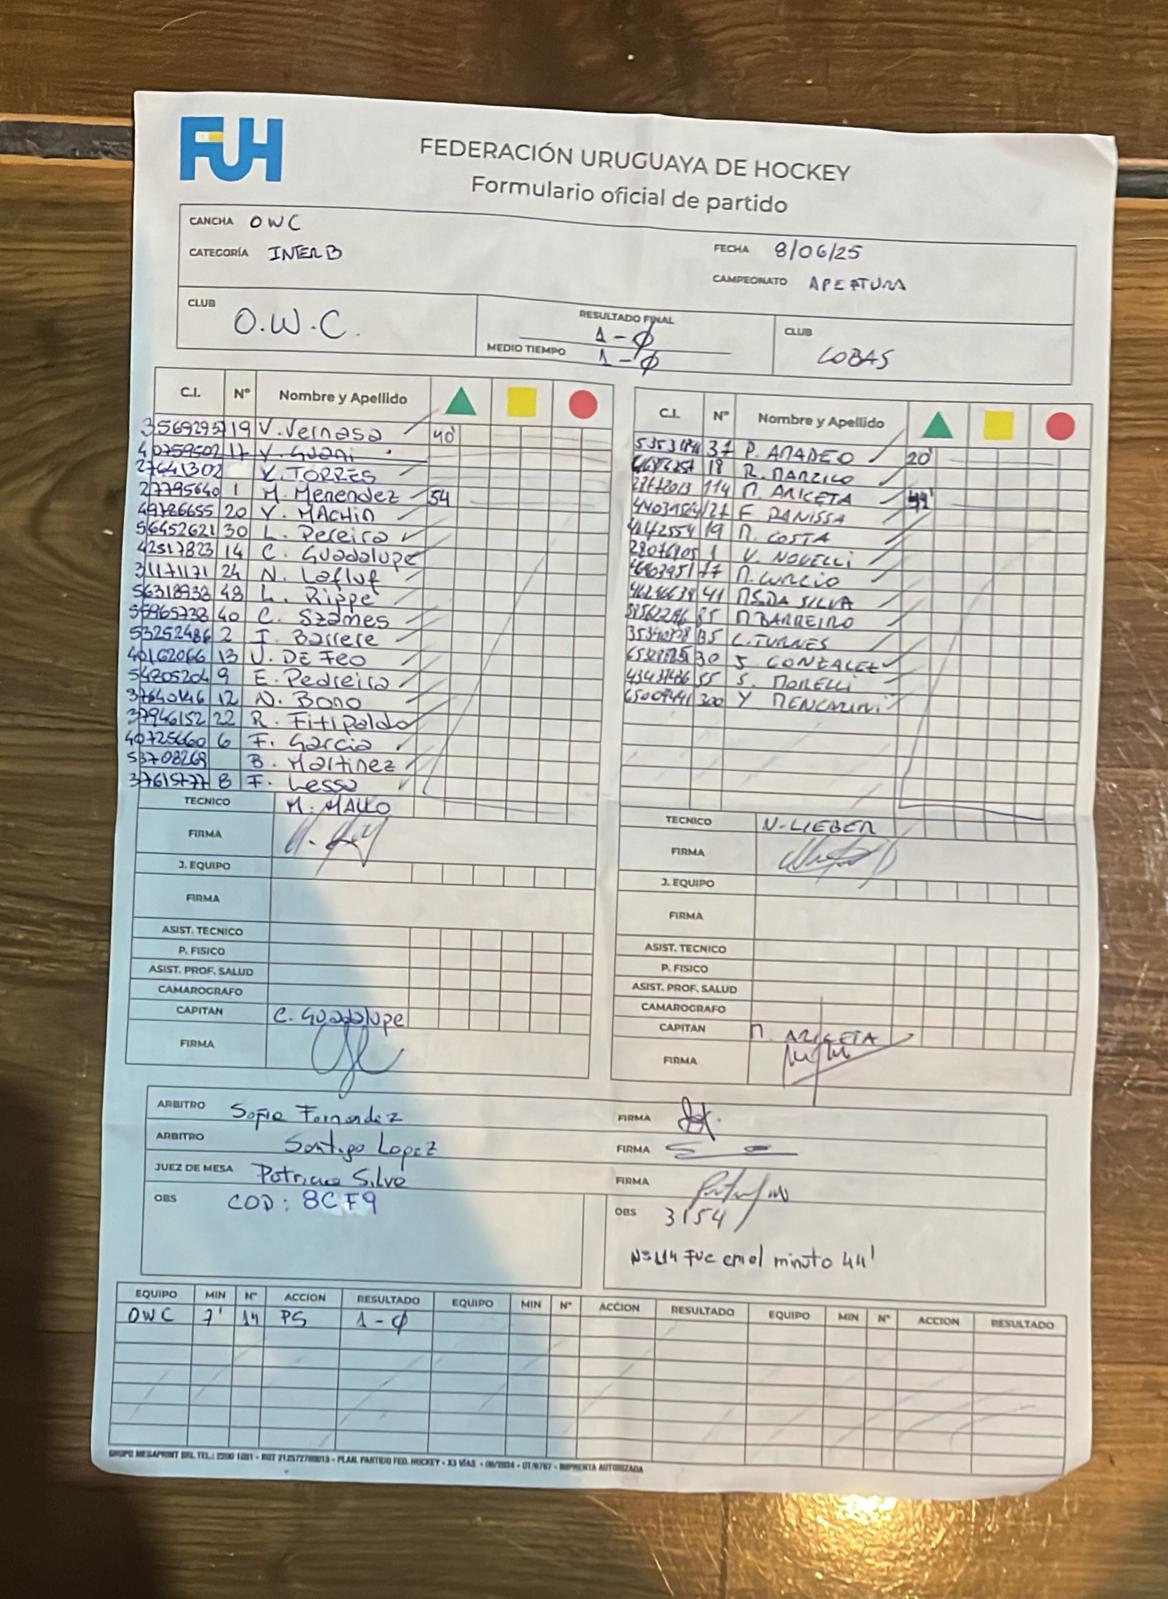 FUH
FEDERACIÓN URUGUAYA DE HOCKEY
Formulario oficial de partido
CANCHA OWC
CATEGORÍA INTER B
FECHA 8/06/25
CAMPEONATO APERTURA
CLUB O.W.C.
RESULTADO FINAL 1-0
MEDIO TIEMPO 1-0
CLUB LOBAS
C.I. Nº Nombre y Apellido
19 V. Vernasa 40'
40759502 17 Y. Guani
27641302 Y. TORRES
27795640 1 M. Menendez 54
49786655 20 Y. MACHIN
56452621 30 L. Pereira
42517823 14 C. Guadalupe
31171171 24 N. Lafluf
56318938 48 L. Rippe
55965738 40 C. Szames
53252486 2 I. Barrere
40162066 13 J. DE FEO
54205204 9 E. Pedreira
37640146 12 N. Bono
37946152 22 R. Fitipaldo
40725660 6 F. Garcia
53708269 B. Martinez
37615777 8 F. Lessa
TECNICO M. MALLO
FIRMA
J. EQUIPO
FIRMA
ASIST. TECNICO
P. FISICO
ASIST. PROF. SALUD
CAMAROGRAFO
CAPITAN C. Guadalupe
FIRMA
C.I. Nº Nombre y Apellido
37 P. AMADEO 20'
18 R. NARZICO
114 M. ARICETA
21 F. DANISSA
19 M. COSTA
1 V. NOVELLI
77 M. CURCIO
41 DA SILVA
M BARREIRO
L. TURNES
30 S. GONZALEZ
55 S. MORELLI
300 Y MENCARINI
TECNICO N. LIEBER
FIRMA
J. EQUIPO
FIRMA
ASIST. TECNICO
P. FISICO
ASIST. PROF. SALUD
CAMAROGRAFO
CAPITAN M. ARICETA
FIRMA
ARBITRO Sofia Fernandez FIRMA
ARBITRO Santigo Lopez FIRMA
JUEZ DE MESA Patricia Silva FIRMA
OBS COD: 8CF9
OBS 3154
Nº 114 FUE en el minuto 44'
EQUIPO MIN Nº ACCION RESULTADO EQUIPO MIN Nº ACCION RESULTADO EQUIPO MIN Nº ACCION RESULTADO
OWC 7' 14 PS 1-0
GRUPO MEGAPRINT SRL TEL.: 2200 1081 - RUT 212572780015 - PLAN. PARTIDO FED. HOCKEY - X3 VÍAS - 06/2024 - OT/6767 - IMPRENTA AUTORIZADA